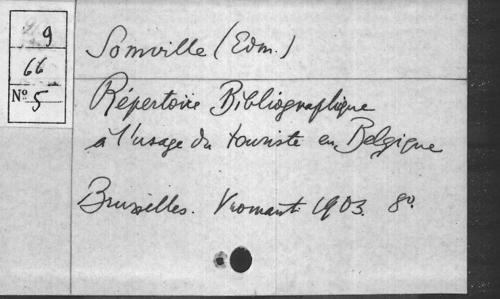 9
66
Nº 5
Somville (Edm.)
Répertoire Bibliographique
à l'usage du touriste en Belgique
Bruxelles. Vromant 1903. 8º